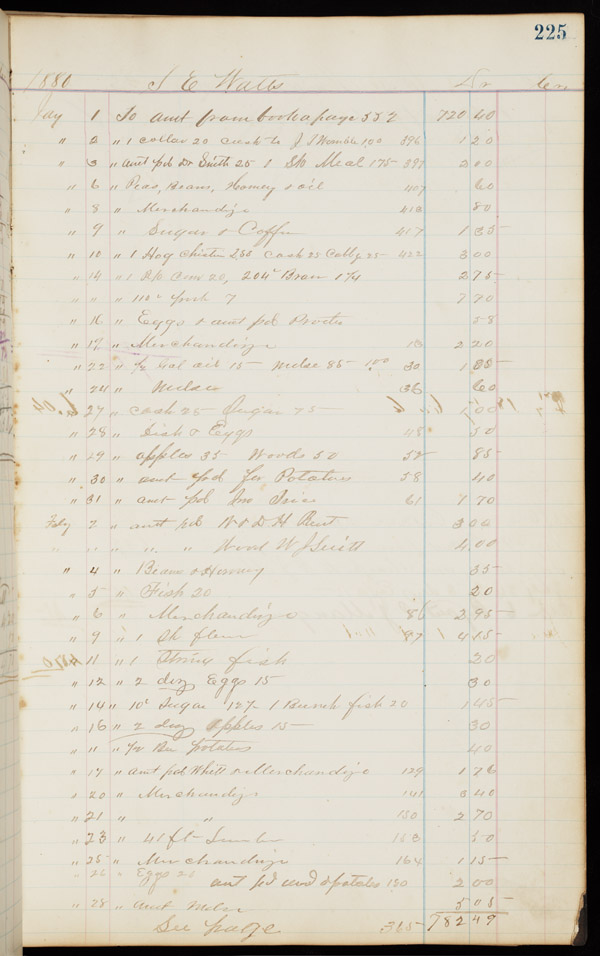 225
1880 S E Watts Dr Cr
Jay 1 To amt from book a page 552 720 40
" 2 " 1 collar 20 cash to J J Womble 1,00 396 1 20
" 3 " amt pd Dr Smith 25 1 Sk Meal 175 393 2 00
" 6 " Peas, Beans, Homey & oil 407 60
" 8 " Merchandize 413 80
" 9 " Sugar & Coffee 417 1 35
" 10 " 1 Hog 255 Cash 25 Cabbg 25 422 3 00
" 14 " 1 Sk Corn 20, 204 Bran 1¼ 2 75
" " " 110 Pork 7 7 70
" 16 " Eggs & amt pd Proctor 58
" 17 " Merchandize 13 2 20
" 22 " ½ Gal oil 15 Mdse 85 1 00 30 1 85
" 24 " Mdse 36 60
" 27 " Cash 25 Sugar 75 1 00
" 28 " Fish & Eggs 48 50
" 29 " apples 35 Woods 50 52 85
" 30 " amt pd for Potatoes 58 40
" 31 " amt pd Jno 61 7 70
Feby 2 " amt pd W & D H Rent 3 00
" " " " " Wood W J 4 00
" 4 " Beans & Hominy 35
" 5 " Fish 20 20
" 6 " Merchandize 86 2 95
" 9 " 1 Sk flour 97 4 15
" 11 " 1 String fish 20
" 12 " 2 doz Eggs 15 30
" 14 " 10 Sugar 12½ 1 Bunch fish 20 1 45
" 16 " 2 doz apples 15 30
" " " ½ Bu potatoes 40
" 17 " amt pd Whitt & Merchandize 129 1 76
" 20 " Merchandize 143 3 40
" 21 " " 150 2 70
" 23 " 41 ft Lumber 163 50
" 25 " Merchandize 164 1 15
" 26 " Eggs 20 amt pd & potatoes 180 2 00
" 28 " amt Mdse 5 05
See page 365 782 49